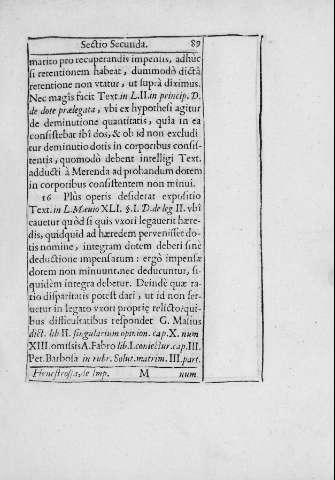 Sectio Secunda. 89
marito pro recuperandis impensis, adhuc
si retentionem habeat, dummodò dictâ
retentione non vtatur, ut suprà diximus.
Nec magis facit Text. in L. II. in princip. D.
de dote prælegata, vbi ex hypothesi agitur
de deminutione quantitatis, quia in ea
consistebat ibi dos, & ob id non excludi
tur deminutio dotis in corporibus consis-
tentis, quomodò debent intelligi Text.
adducti à Merenda ad probandum dotem
in corporibus consistentem non minui.
16 Plùs operis desiderat expositio
Text. in L. Mæuio XLI. §. I. D. de leg II. vbi
cauetur quòd si quis vxori legauerit hære-
dis, quidquid ad hæredem pervenisset do-
tis nomine, integram dotem deberi sinè
deductione impensarum: ergò impensæ
dotem non minuunt, nec deducuntur, si-
quidem integra debetur. Deindè quæ ra-
tio disparitatis potest dari, ut id non ser-
uetur in legato vxori propriè relicto: qui-
bus difficultatibus respondet G. Masius
dict. lib II. singularium opinion. cap. X. num
XIII. omissis A. Fabro lib. I. coniectur. cap. III.
Pet. Barbosa in rubr. Solut. matrim. III. part.
Finestrossa, de Imp. M num